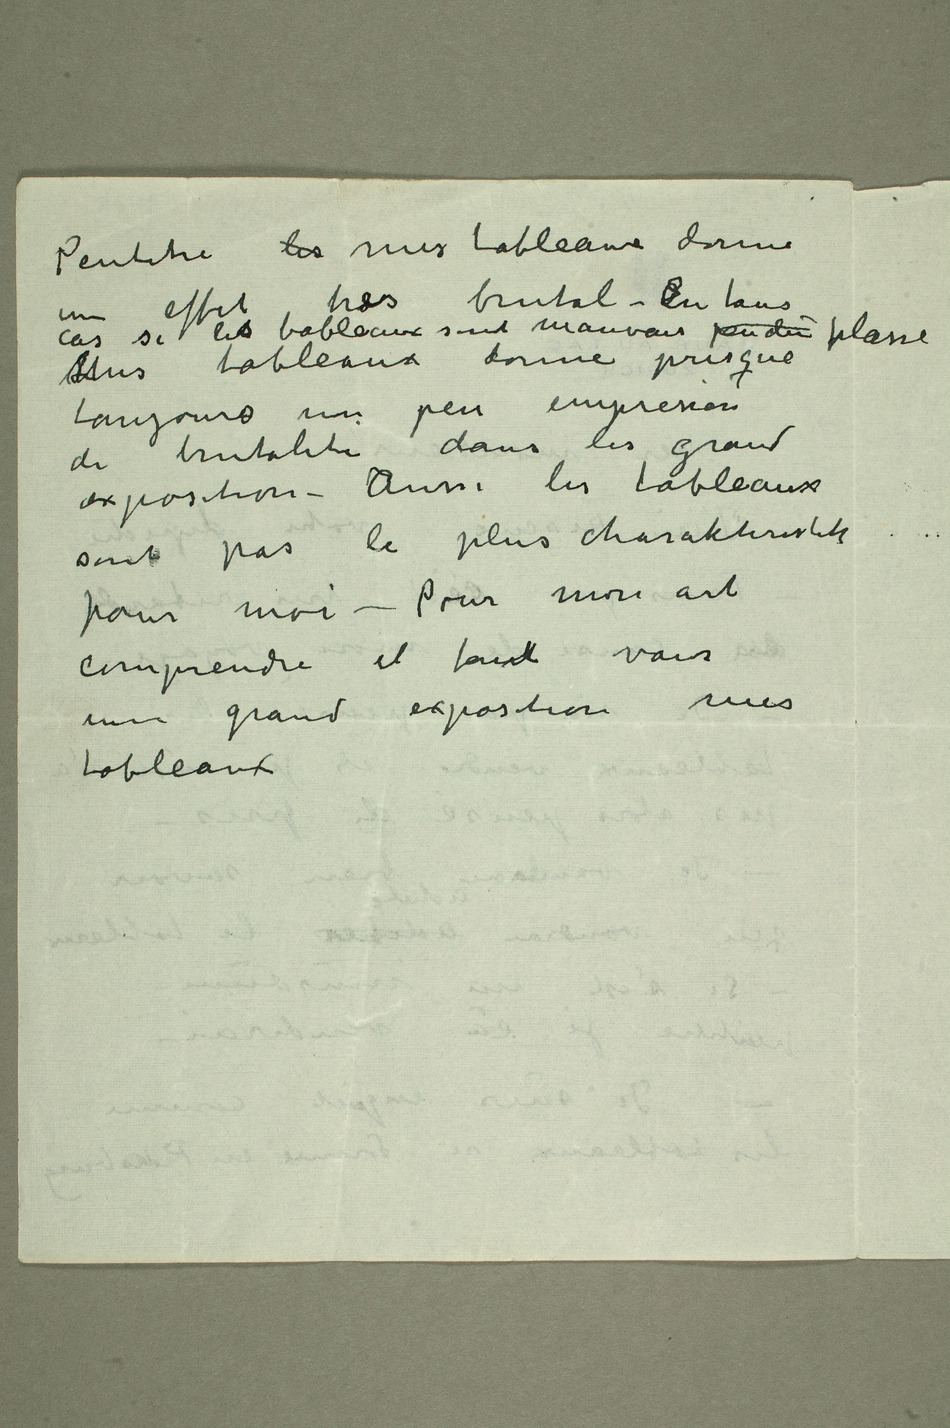 Peutetre les mes tableaux donne
un effet tres brutal – En tous
cas si les tableaux sont mauvais pendu plasse
Mes tableaux donne presque
toujours un peu empresion
de brutalite dans les grand
exposition – Aussi les tableaux
sont pas le plus charakteristik
pour moi – Pour mon art
comprendre il faut voir
une grand exposition mes
tableaux